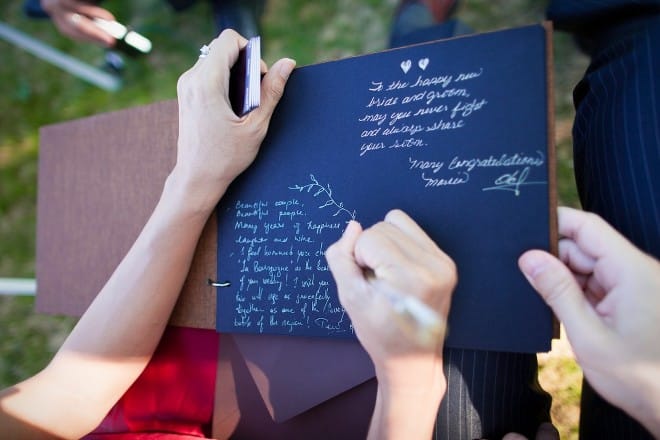 To the happy new
bride and groom,
may you never fight
and always share
your
Many Congratulations
Beautiful couple,
Beautiful people.
Many years of happiness,
laughter and wine.
I feel honoured you chose
"La Bourgogne" as the
of you wedding! I wish you
will age as gracefully
together as one of the
of the region!